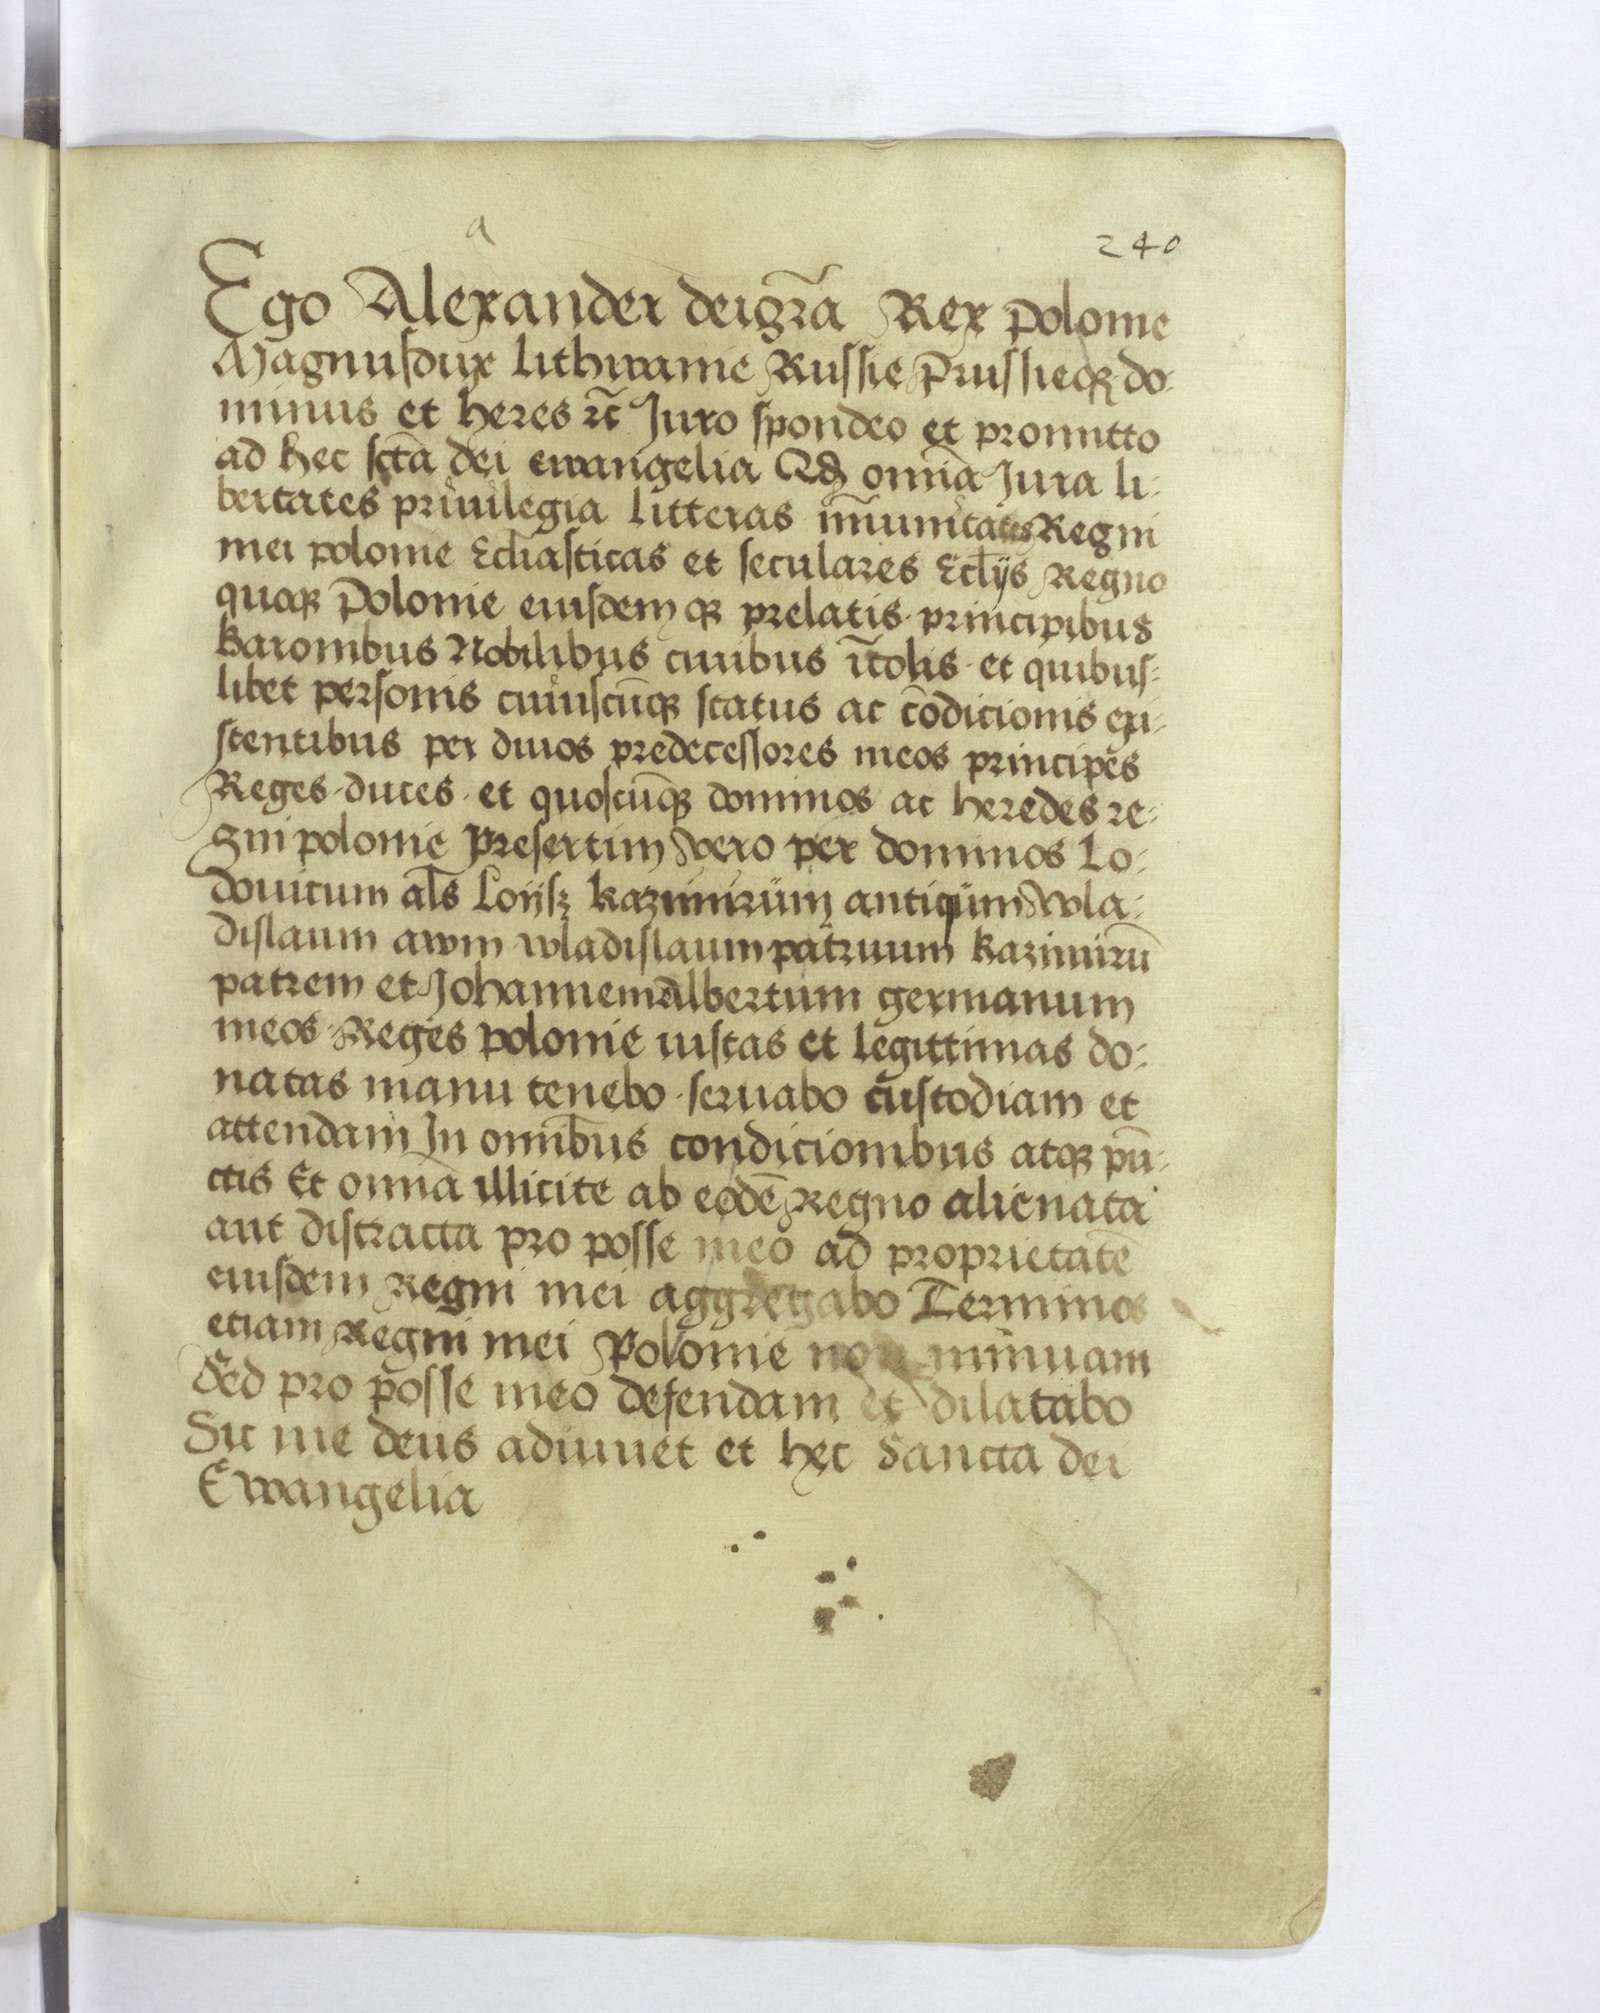 a
240
Ego Alexander deigr̃a Rex polonie
Magnusdux lithwanie Russie prussieqꝫ do-
minus et heres ⁊c̃ Juro spondeo et promitto
ad hec sctã dei ewangelia Qđ omñia Jura li-
bertates priuilegia litteras im̃unitates Regni
mei polonie Eccliasticas et seculares Eccłijs Regno
quoqꝫ polonie eiusdemqꝫ prelatis principibus
baronibus Nobilibus ciuibus ĩcolis et quibus-
libet personis cuiuscũqꝫ status ac cõdicionis exi-
stentibus per diuos predecessores meos principes
Reges duces et quoscũqꝫ dominos ac heredes re-
gni polonie presertim vero per dominos Lo-
douicum al̃s Loijsz kazimirum antiquum wla-
dislaum awm wladislaum patruum kazimirũ
patrem et Johannemalbertum germanum
meos Reges polonie iustas et legittimas do-
natas manu tenebo seruabo custodiam et
attendam In omĩbus condicionibus atqꝫ pũ-
ctis Et omñia illicite ab eodẽ Regno alienata
aut distracta pro posse meo ad proprietatẽ
eiusdem Regni mei aggregabo Terminos
etiam Regni mei Polonie non minuam
Sed pro posse meo defendam et dilatabo
Sic me deus adiuuet et hec Sancta dei
Ewangelia